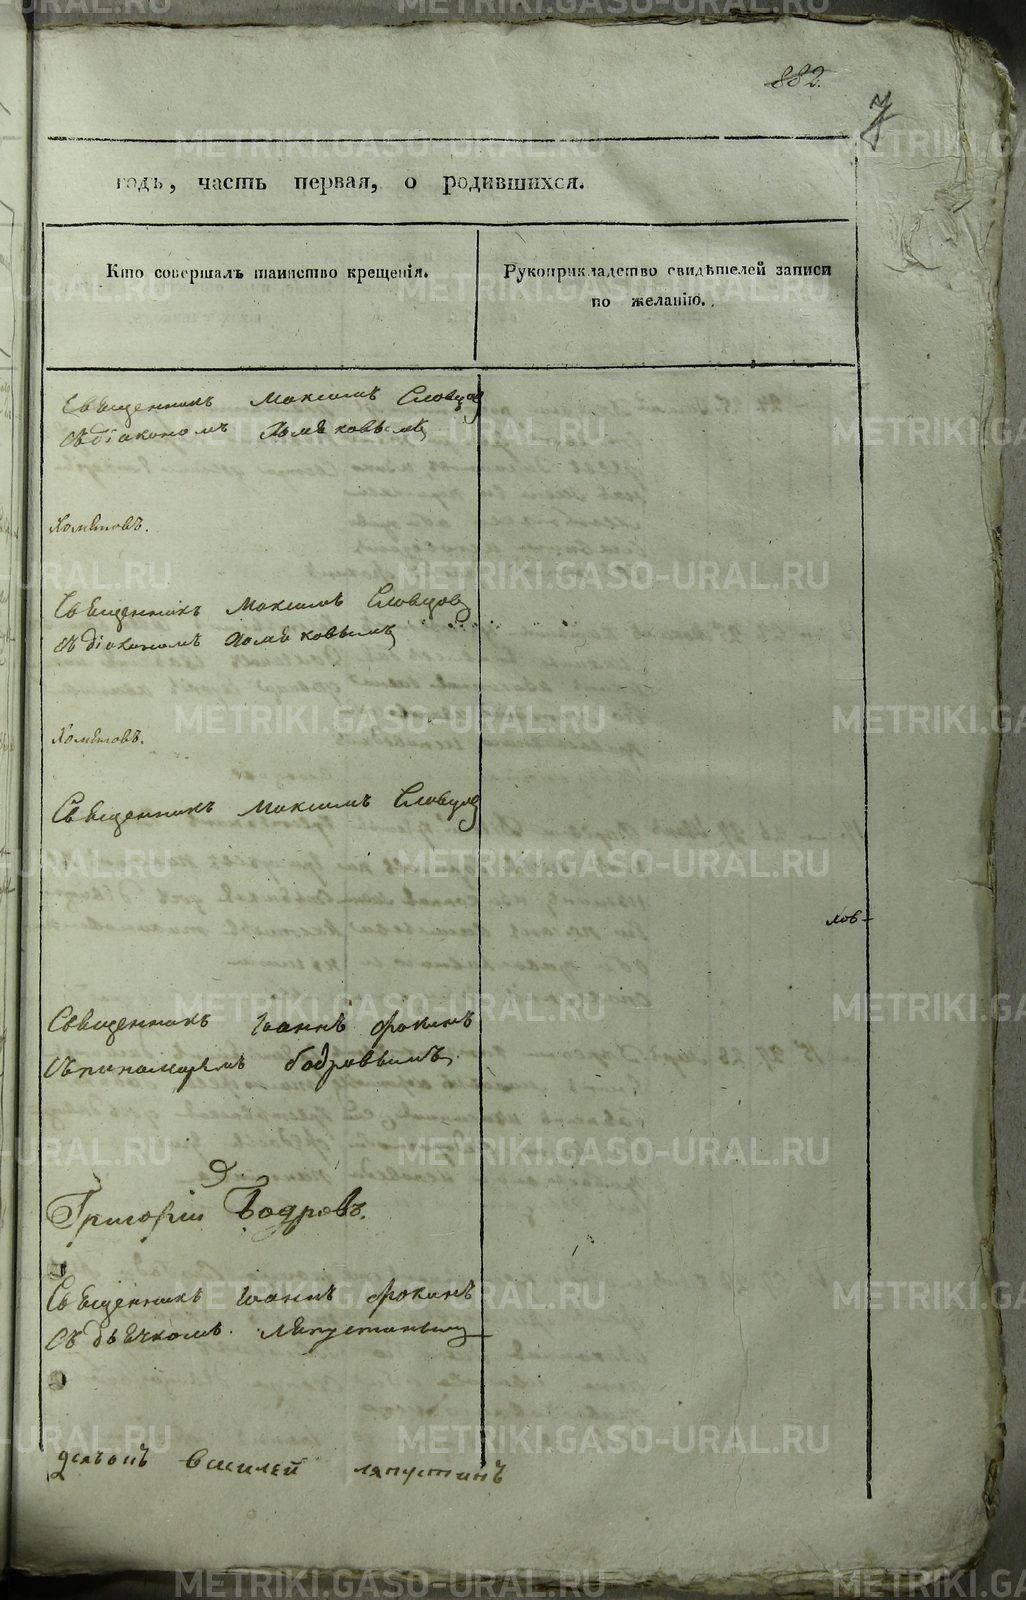 882.
7
годъ, часть первая, о родившихся.
Кто совершалъ таинство крещенія.
Рукоприкладство свидѣтелей записи
по желанію.
Священникъ Максимъ Словцов
съ діакономъ
Хомяковъ.
Священникъ Максимъ Словцовъ
съ діакономъ Хомяковымъ
Хомяковъ.
Священникъ Максимъ Словцов
лов-
Священникъ Іоаннъ Фокинъ
съ пономаремъ Бодровымъ.
Григорій Бодровъ.
Священникъ Іоаннъ Фокинъ
съ дьячкомъ. Ляпустиным
Василей ляпустинъ
METRIKI.GASO-URAL.RU